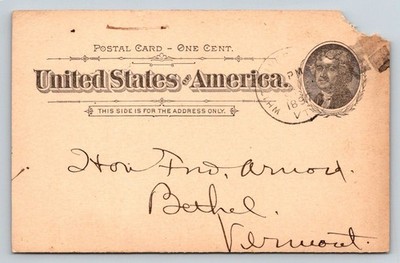 POSTAL CARD – ONE CENT.
United States of America.
THIS SIDE IS FOR THE ADDRESS ONLY.
PM
189
VT
Hon Fnd. Arnold.
Bethel.
Vermont.